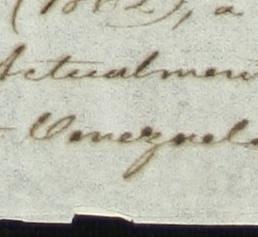 (1882), a
Actualmen
Venezuela